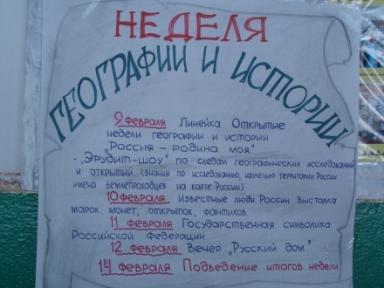 НЕДЕЛЯ
ГЕОГРАФИИ И ИСТОРИИ
9 февраля Линейка Открытие
недели географии и истории
"Россия – родина моя"
- "Эрудит-шоу" по следам географических исследований
и открытий (знания по исследованию, изучению территории России
имена землепроходцев на карте России)
10 февраля Известные люди России Выставка
марок, монет, открыток, фантиков.
11 февраля Государственная символика
Российской Федерации
12 февраля Вечер "Русский дом"
14 февраля Подведение итогов недели.